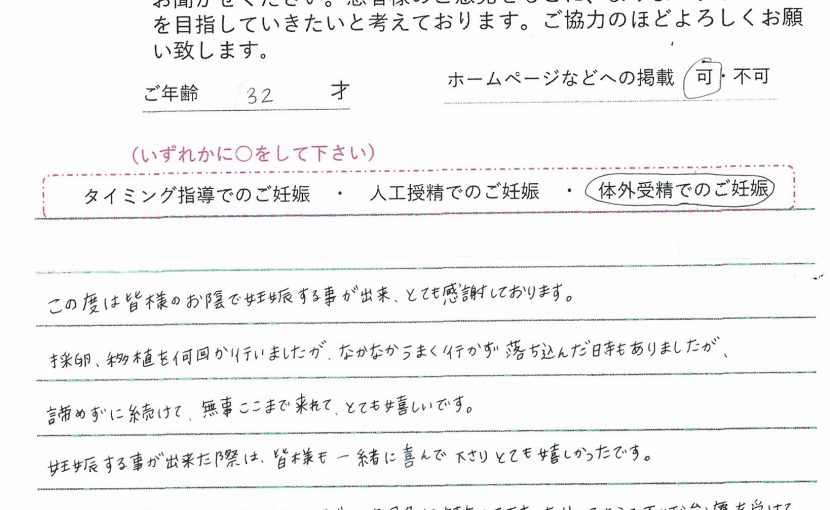 を目指していきたいと考えております。ご協力のほどよろしくお願
い致します。
ご年齢 32 才
ホームページなどへの掲載 可・不可
(いずれかに○をして下さい)
タイミング指導でのご妊娠 ・ 人工授精でのご妊娠 ・ 体外受精でのご妊娠
この度は皆様のお陰で妊娠する事が出来、とても感謝しております。
採卵、移植を何回か行いましたが、なかなかうまく行かず落ち込んだ時もありましたが、
諦めずに続けて、無事ここまで来れて、とても嬉しいです。
妊娠する事が出来た際は、皆様も一緒に喜んで下さりとても嬉しかったです。